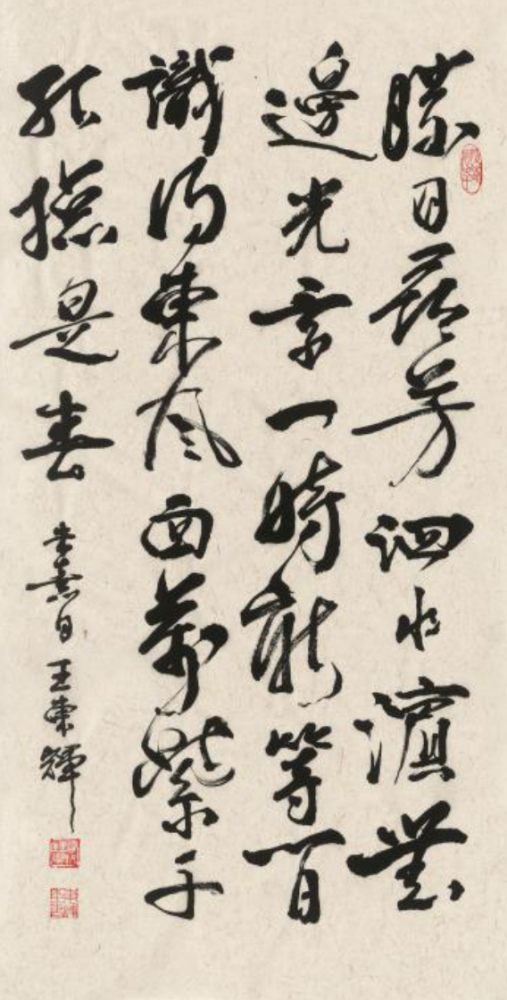 勝日尋芳泗水濱無
邊光景一時新等間
識得東風面萬紫千
紅總是春 朱熹日 王東輝